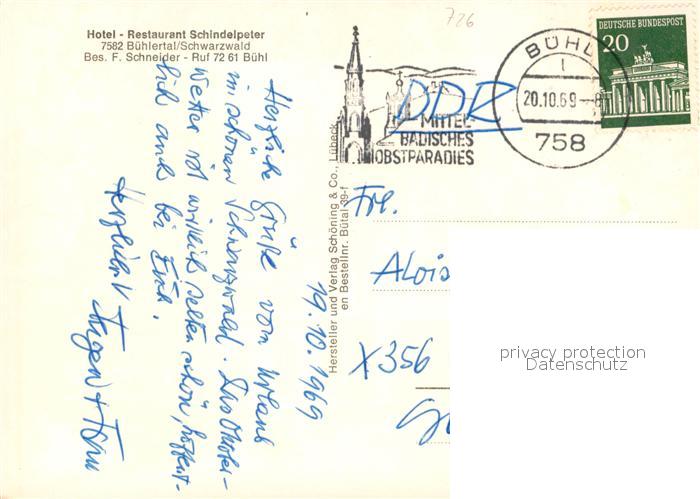 Hotel - Restaurant Schindelpeter
7582 Bühlertal/Schwarzwald
Bes. F. Schneider - Ruf 72 61 Bühl
726
MITTEL-
BADISCHES
OBSTPARADIES
DDR
BÜHL
1
20.10.69-8
758
DEUTSCHE BUNDESPOST
20
19.10.1969
Herzliche Grüße vom Urlaub
im schönen Schwarzwald. Das Oktober-
wetter ist wirklich selten schön, hoffent-
lich auch bei Euch.
Herzlichst
Hersteller und Verlag Schöning & Co., Lübeck
en Bestellnr. Bütal 39-f
Alois
X356
privacy protection
Datenschutz